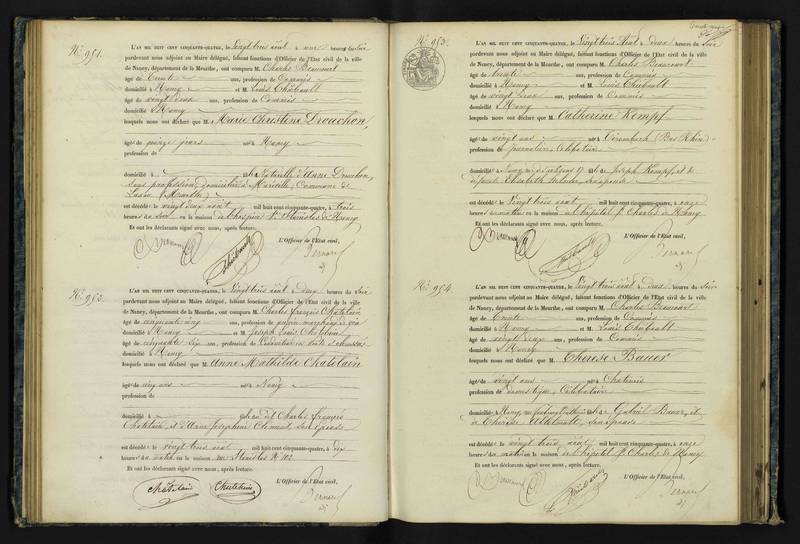 No. 951.
L'AN MIL HUIT CENT CINQUANTE-QUATRE, le Vingt trois août à une heure du Soir
pardevant nous adjoint au Maire délégué, faisant fonctions d'Officier de l'Etat civil de la ville
de Nancy, département de la Meurthe, ont comparu M. Charles Beaucourt
âgé de Trente ans, profession de Commis
domicilié à Nancy et M. Louis Thiébault
âgé de vingt deux ans, profession de Commis
domicilié à Nancy
lesquels nous ont déclaré que M. Marie Christine Drouchon,
âgé de quinze jours né à Nancy
profession de
domicilié à fille Naturelle d'Anne Drouchon
sans profession, domiciliée à Commune de
est décédé le vingt deux août mil huit cent cinquante-quatre, à trois
heures du soir en la maison de l'hospice St Stanislas de Nancy
Et ont les déclarants signé avec nous, après lecture.
L'Officier de l'Etat civil,
Thiébault
Bernard
No. 952.
L'AN MIL HUIT CENT CINQUANTE-QUATRE, le Vingt trois août à deux heures du Soir
pardevant nous adjoint au Maire délégué, faisant fonctions d'Officier de l'Etat civil de la ville
de Nancy, département de la Meurthe, ont comparu M. Charles François Chatelain
âgé de cinquante cinq ans, profession de
domicilié à Nancy et M. Joseph Louis Chatelain
âgé de cinquante six ans, profession de
domicilié à Nancy
lesquels nous ont déclaré que M. Anne Mathilde Chatelain
âgé de cinq ans né à Nancy
profession de
domicilié à fille de dit Charles François
Chatelain, et d'Anne Joséphine Clément, son épouse
est décédé le vingt trois août mil huit cent cinquante-quatre, à dix
heures du matin en la maison rue Stanislas No 102
Et ont les déclarants signé avec nous, après lecture.
L'Officier de l'Etat civil,
Châtelain Chatelain
Bernard
No. 953.
L'AN MIL HUIT CENT CINQUANTE-QUATRE, le Vingt trois Août à deux heures du Soir
pardevant nous adjoint au Maire délégué, faisant fonctions d'Officier de l'Etat civil de la ville
de Nancy, département de la Meurthe, ont comparu M. Charles Beaucourt
âgé de trente ans, profession de Commis
domicilié à Nancy et M. Louis Thiébault
âgé de vingt deux ans, profession de Commis
domicilié à Nancy
lesquels nous ont déclaré que M. Catherine Kempf
âgé de vingt ans né à (Bas Rhin)
profession de journalière, Célibataire
domicilié à Nancy 17 fille de Joseph Kempf, et de
Elisabeth son épouse
est décédé le Vingt trois août mil huit cent cinquante-quatre, à onze
heures du matin en la maison de l'hôpital St Charles de Nancy
Et ont les déclarants signé avec nous, après lecture.
L'Officier de l'Etat civil,
Thiébault
Bernard
No. 954.
L'AN MIL HUIT CENT CINQUANTE-QUATRE, le Vingt trois août à deux heures du Soir
pardevant nous adjoint au Maire délégué, faisant fonctions d'Officier de l'Etat civil de la ville
de Nancy, département de la Meurthe, ont comparu M. Charles Beaucourt
âgé de Trente ans, profession de Commis
domicilié à Nancy et M. Louis Thiébault
âgé de vingt deux ans, profession de Commis
domicilié à Nancy
lesquels nous ont déclaré que M. Thérèse Bauer
âgé de vingt ans né à Chatenois
profession de domestique, Célibataire
domicilié à Nancy, fille de Gabriel Bauer, et
de Thérèse son épouse
est décédé le vingt trois août mil huit cent cinquante-quatre, à onze
heures du matin en la maison de l'hôpital St Charles de Nancy
Et ont les déclarants signé avec nous, après lecture.
L'Officier de l'Etat civil,
Thiébault
Bernard